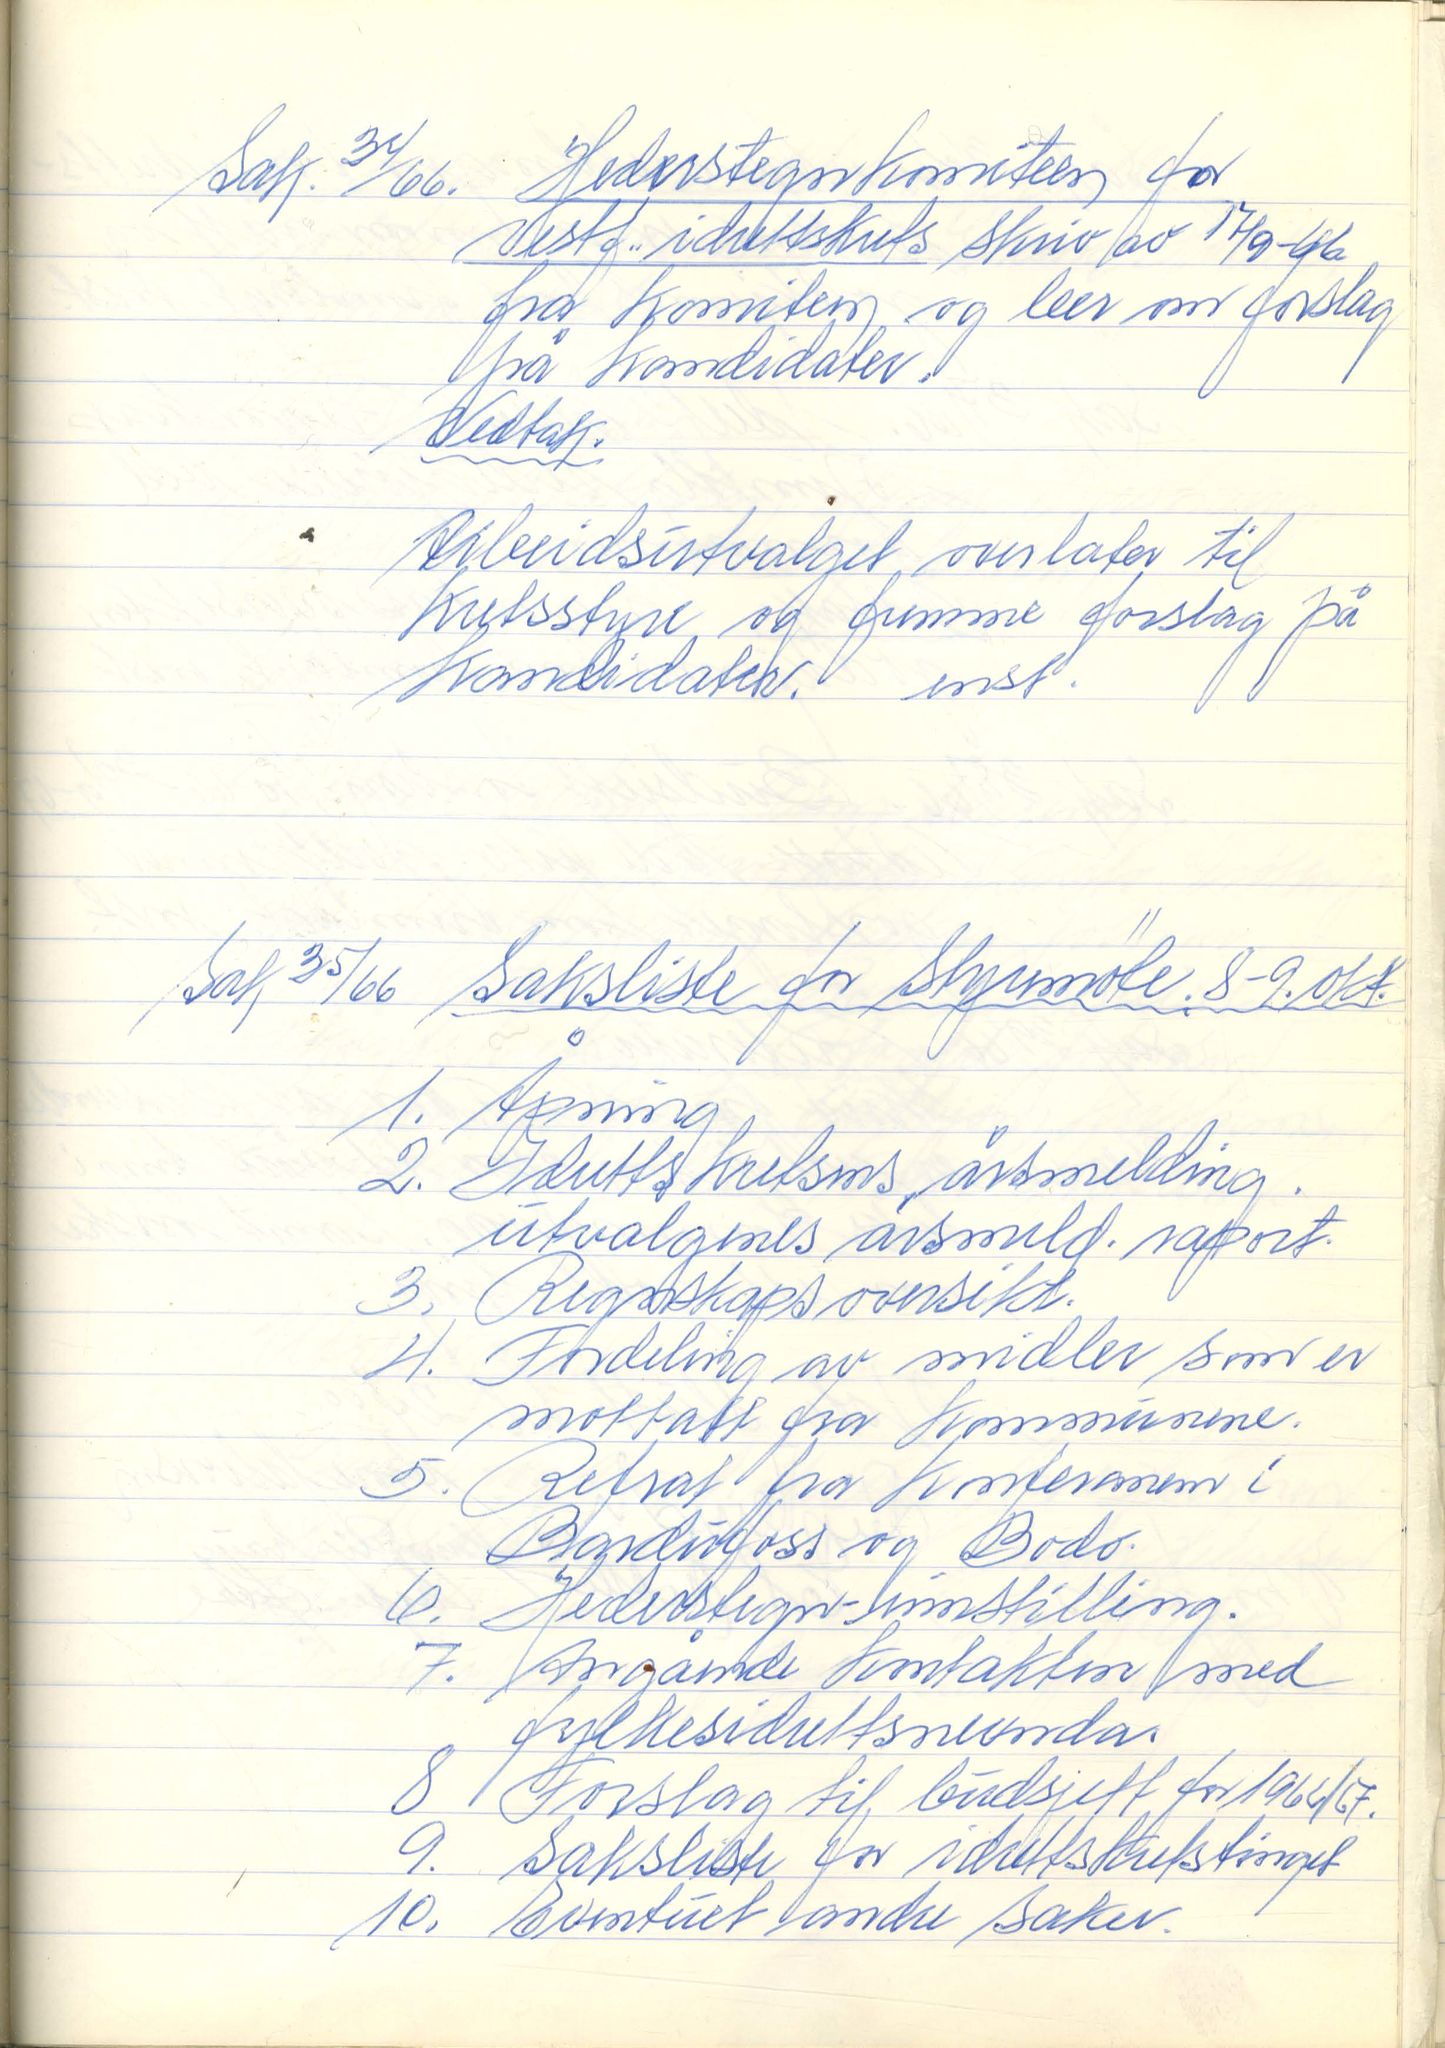 Sak. 34/66. Hederstegnkomiteen for
Vestf. idrettskrets skriv av 17/9-66
fra komiteen og beer om forslag
på kandidater.
Vedtak.
Arbeidsutvalget overlater til
Kretsstyre og fremme forslag på
Kandidater. enst.
Sak 35/66 Saksliste for styremöte. 8-9. okt.
1. Åpning
2. Idrettskretsens årsmelding.
utvalgenes årsmeld. raport.
3. Regnskapsoversikt.
4. Fordeling av midler som er
mottatt fra kommunene.
5. Refrat fra konferansen i
Bardufoss og Bodo.
6. Hederstegn-innstilling.
7. Angående kontakten med
fylkesidrettsnevnda.
8 Forslag til budsjett for 1966/67.
9. Saksliste for idrettskretstinget
10. Eventuelt andre saker.